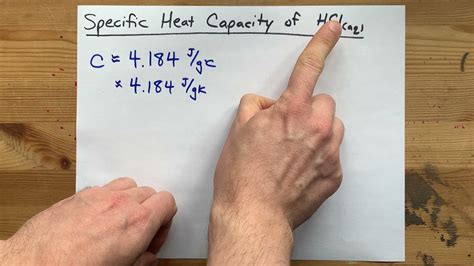 Specific Heat Capacity of HCl(aq)
C ≈ 4.184 J/g°C
≈ 4.184 J/gK